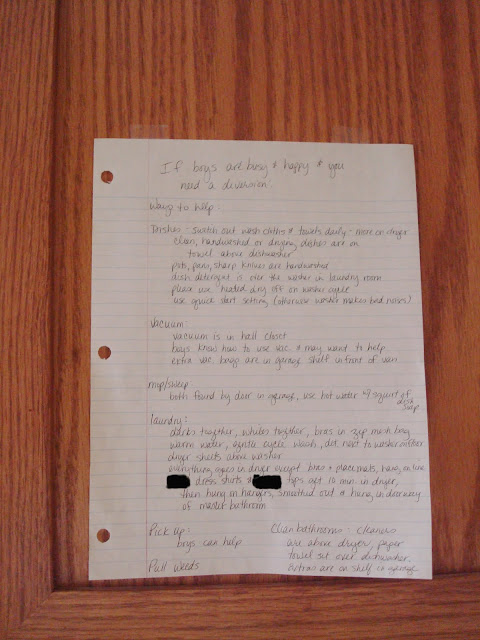 If boys are busy & happy & you
need a diversion:
Ways to help:
Dishes - switch out wash cloths & towels daily - more on dryer
clean, handwashed or drying dishes are on
towel above dishwasher
pots, pans, sharp knives are handwashed
dish detergent is over the washer in laundry room
please use heated dry off on washer cycle
use quick start setting (otherwise washer makes bad noises)
Vacuum:
vacuum is in hall closet
boys know how to use vac. & may want to help
extra vac. bags are in garage shelf in front of van
mop/sweep
both found by door in garage, use hot water w/ squirt of
dish
soap
laundry:
darks together, whites together, bras in zip mesh bag
warm water, gentle cycle, det. next to washer
dryer sheets above washer
everything goes in dryer except bras & placemats, hang on line
dress shirts & tops get 10 min. in dryer,
then hung on hangers, smoothed out & hung in doorway
of master bathroom
Pick Up:
boys can help
Pull weeds
Clean bathrooms - cleaners
are above dryer, paper
towel set over dishwasher,
extras are on shelf in garage